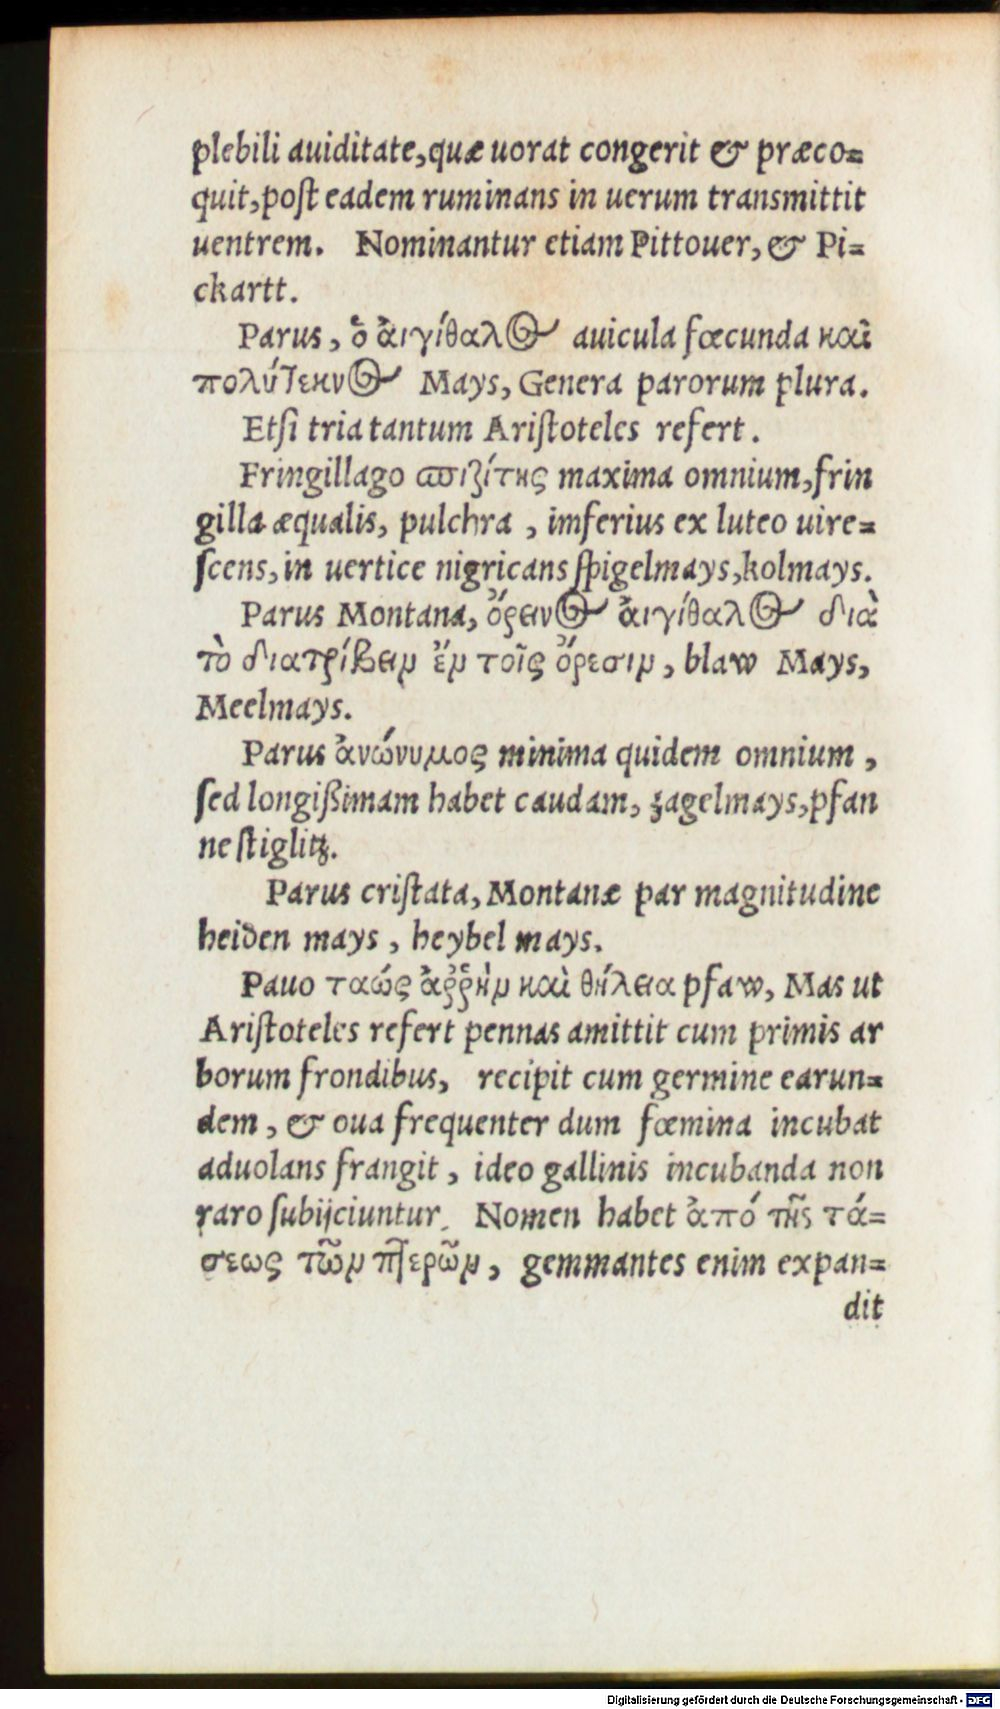 plebili auiditate,quæ uorat congerit & præco=
quit,poſt eadem ruminans in uerum transmittit
uentrem. Nominantur etiam Pittouer, & Pi=
ckartt.
Parus, ὁ ἀιγίθαλος auicula fœcunda καὶ
πολύτεκνος Mays, Genera parorum plura.
Etſi tria tantum Ariſtoteles refert.
Fringillago σπιζίτης maxima omnium,frin
gilla æqualis, pulchra , imferius ex luteo uire=
ſcens, in uertice nigricans ſpigelmays,kolmays.
Parus Montana, ὄρεινος ἀιγίθαλος διὰ
τὸ διατρίβειν ἔν τοῖς ὄρεσιν, blaw Mays,
Meelmays.
Parus ἀνώνυμος minima quidem omnium ,
ſed longißimam habet caudam, zagelmays,pfan
neſtiglitz.
Parus criſtata, Montanæ par magnitudine
heiden mays , heybel mays.
Pauo ταώς ἀῤῥἑν καὶ θήλεια pfaw, Mas ut
Ariſtoteles refert pennas amittit cum primis ar
borum frondibus, recipit cum germine earun=
dem , & oua frequenter dum fœmina incubat
aduolans frangit , ideo gallinis incubanda non
raro ſubijciuntur. Nomen habet ἀπό τῆς τά=
σεως τῶν πτερῶν, gemmantes enim expan=
dit
Digitalisierung gefördert durch die Deutsche Forschungsgemeinschaft - DFG